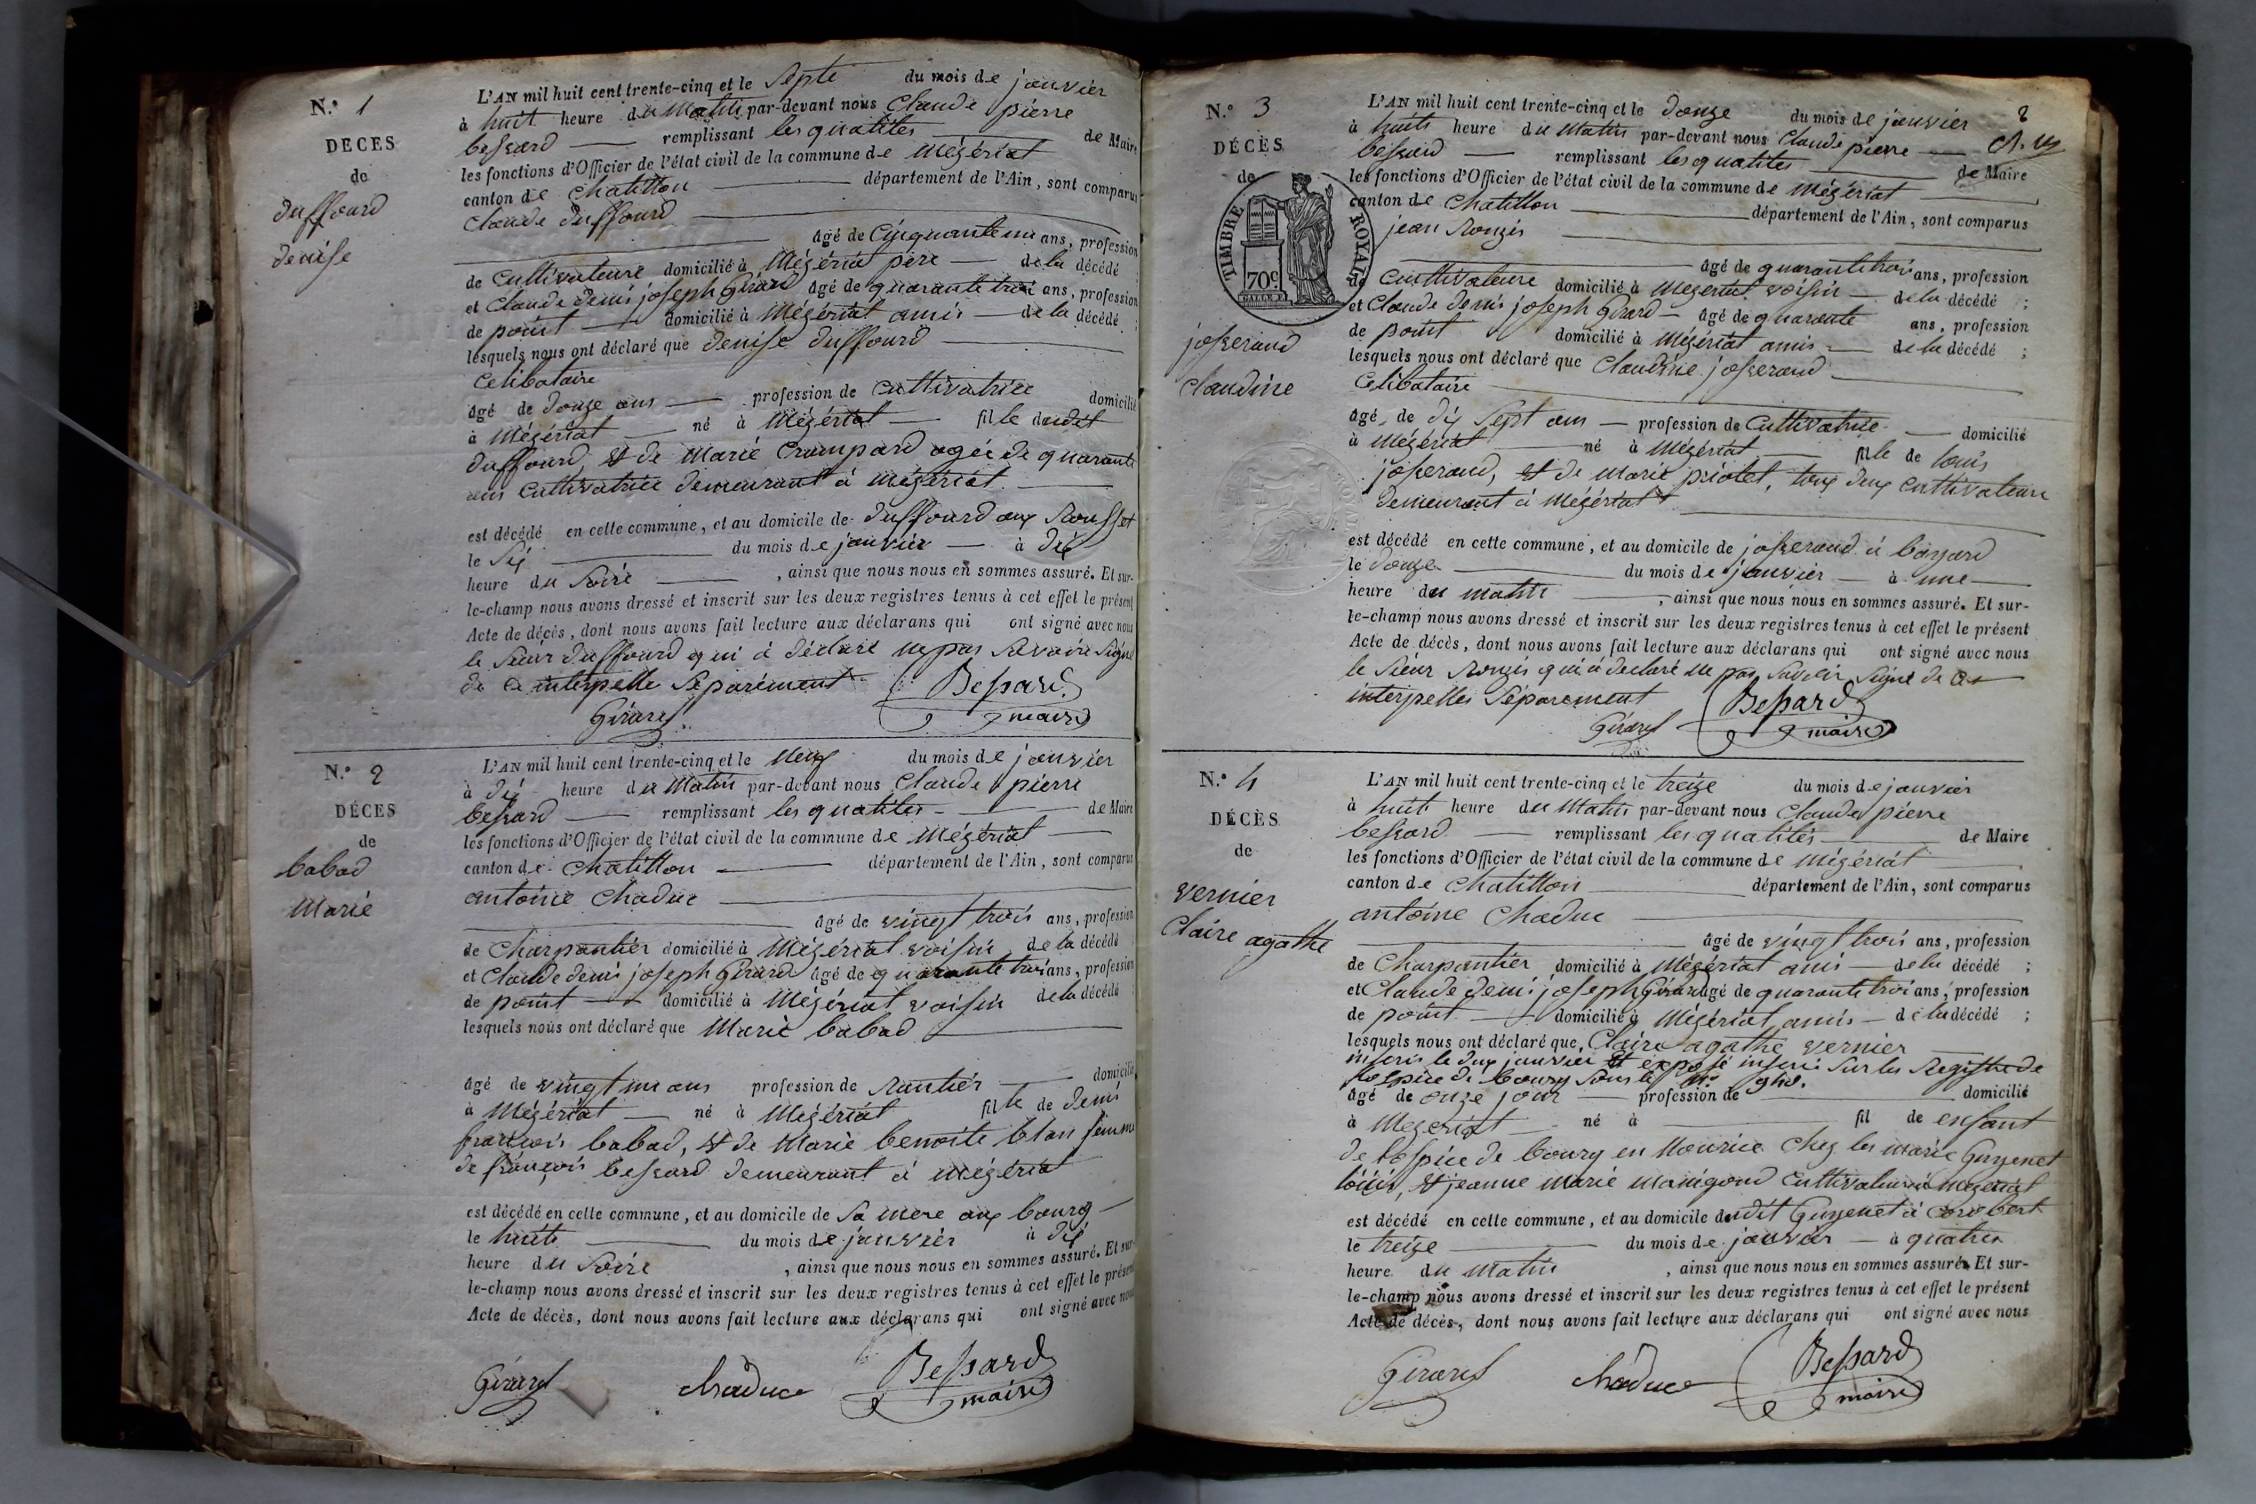 N.° 1
DÉCES
de
duffourd
denise
L'AN mil huit cent trente-cinq et le septe du mois de janvier
à huit heure du matin par-devant nous Claude pierre
bessard remplissant les qualités de Maire
les fonctions d'Officier de l'état civil de la commune de Mézériat
canton de Chatillon département de l'Ain, sont comparus
Claude duffourd
âgé de Cinquante un ans, profession
de Cultivateure domicilié à Mézériat père de la décédé ;
et Claude denis joseph Girard âgé de quarante trois ans, profession
de point domicilié à Mézériat amis de la décédé ;
lesquels nous ont déclaré que denise duffourd
Celibataire
âgé de douze ans profession de Cultivatrice domicilié
à Mézériat né à Mézériat fille dudit
duffourd, et de Marie Crampard agée de quarante
ans Cultivatrice demeurant à Mézériat
est décédé en cette commune, et au domicile de duffourd aux Rousset
le Six du mois de janvier à dix
heure du Soire , ainsi que nous nous en sommes assuré. Et sur-
le-champ nous avons dressé et inscrit sur les deux registres tenus à cet effet le présent
Acte de décès, dont nous avons fait lecture aux déclarans qui ont signé avec nous
le Sieur duffourd qui à déclaré ne pas Savoire Signé
de ce interpelle Séparément
Bessard
maire
Girard
N.° 2
DÉCES
de
babad
Marie
L'AN mil huit cent trente-cinq et le neuf du mois de janvier
à dix heure du Matin par-devant nous Claude pierre
bessard remplissant les qualités de Maire
les fonctions d'Officier de l'état civil de la commune de Mézériat
canton de Chatillon département de l'Ain, sont comparus
antoine Chaduc
âgé de vingt trois ans, profession
de Charpantier domicilié à Mézériat voisin de la décédé
et Claude denis joseph Girard âgé de quarante trois ans, profession
de point domicilié à Mézériat voisin de la décédé
lesquels nous ont déclaré que Marie babad
âgé de vingt un ans profession de Rantier domicilié
à Mézériat né à Mézériat fille de denis
francois babad, et de Marie benoite blan femme
de françois bessard demeurant à Mézériat
est décédé en cette commune, et au domicile de Sa mere aux bourg
le huite du mois de janvier à dix
heure du Soire , ainsi que nous nous en sommes assuré. Et sur-
le-champ nous avons dressé et inscrit sur les deux registres tenus à cet effet le présent
Acte de décès, dont nous avons fait lecture aux déclarans qui ont signé avec nous
Girard Chaduc Bessard
maire
2
N.° 3
DÉCÈS
de
TIMBRE ROYAL
70c
josserand
Claudine
L'AN mil huit cent trente-cinq et le douze du mois de janvier
à huits heure du Matin par-devant nous Claude pierre
bessard remplissant les qualités de Maire
les fonctions d'Officier de l'état civil de la commune de Mézériat
canton de Chatillon département de l'Ain, sont comparus
jean Rongis
âgé de quarante trois ans, profession
de Cultivateure domicilié à Mézériat voisin de la décédé ;
et Claude denis joseph Girard âgé de quarante ans, profession
de point domicilié à Mézériat amis de la décédé ;
lesquels nous ont déclaré que Claudine josserand
Celibataire
âgé de dix Sept ans profession de Cultivatrice domicilié
à Mézériat né à Mézériat fille de louis
josserand, et de Marie priolet, tous deux Cultivateure
demeurant à Mézériat
est décédé en cette commune, et au domicile de josserand à
le douze du mois de janvier à une
heure du matin , ainsi que nous nous en sommes assuré. Et sur-
le-champ nous avons dressé et inscrit sur les deux registres tenus à cet effet le présent
Acte de décès, dont nous avons fait lecture aux déclarans qui ont signé avec nous
le Sieur Rongis qui à déclaré ne pas Savoir Signé de ce
interpelles Séparement
Bessard
maire
Girard
N.° 4
DÉCÈS
de
vernier
Claire agathe
L'AN mil huit cent trente-cinq et le treize du mois de janvier
à huit heure du Matin par-devant nous Claude pierre
bessard remplissant les qualités de Maire
les fonctions d'Officier de l'état civil de la commune de Mézériat
canton de Chatillon département de l'Ain, sont comparus
antoine Chaduc
âgé de vingt trois ans, profession
de Charpantier domicilié à Mézériat amis de la décédé ;
et Claude denis joseph Girard âgé de quarante trois ans, profession
de point domicilié à Mézériat amis de la décédé ;
lesquels nous ont déclaré que Claire agathe vernier
inscris le deux janvier et exposé inscrie Sur les Registre de
hospice de bourg Sous le n°
âgé de onze jour profession de domicilié
à Mézériat né à fil de enfant
de hospice de bourg en Nourice Chez les marié Guyenet
louis, et jeanne Marie Cultivateur à Mézériat
est décédé en cette commune, et au domicile dudit Guyenet à
le treize du mois de janvier à quatre
heure du matin , ainsi que nous nous en sommes assuré. Et sur-
le-champ nous avons dressé et inscrit sur les deux registres tenus à cet effet le présent
Acte de décès, dont nous avons fait lecture aux déclarans qui ont signé avec nous
Girard Chaduc Bessard
maire